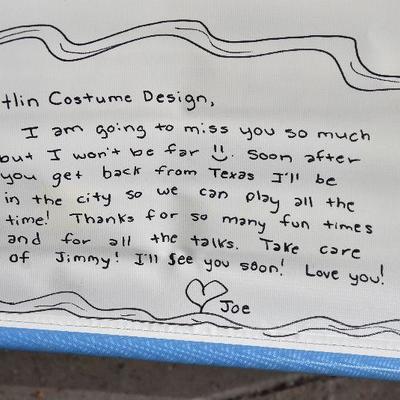 tlin Costume Design,
I am going to miss you so much
but I won't be far :). Soon after
you get back from Texas I'll be
in the city so we can play all the
time! Thanks for so many fun times
and for all the talks. Take care
of Jimmy! I'll see you soon! Love you!
Joe